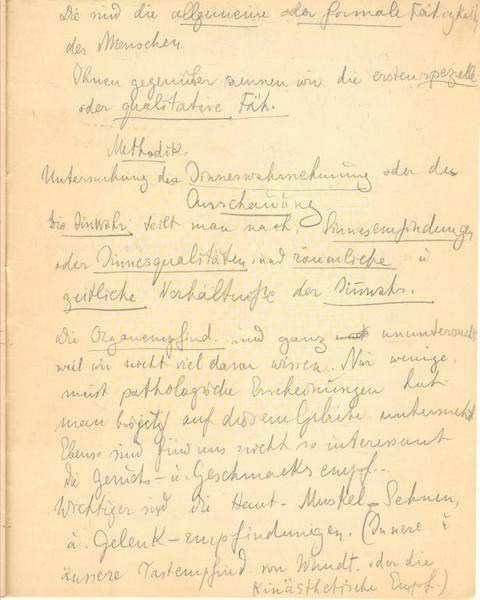 Die sind die allgemeine oder formale Fähigkeit
des Menschen.
Ihnen gegenüber nennen wir die ersten spezielle
oder qualitative Fäh.
Methodik.
Untersuchung des Sinneswahrnehmung oder der
Anschauung
Die Sinwahr. teilt man nach: Sinnesempfindungen
oder Sinnesqualitäten. und räumliche u
zeitliche Verhältniße der Sinwahr.
Die Organempfind. sind ganz ununtersucht
weil wir nicht viel davon wissen. Nur wenige,
meist pathologische Erscheinungen hat
man auf diesem Gebiete untersucht
Ebenso sind für uns nicht so interessant
die Geruchs- u Geschmacksempf..
Wichtiger sind die Haut- Muskel- Sehnen,
u. Gelenk-empfindungen. (Innere u
äussere Tastempfind von Wundt. oder die
Kinästhetische Empf.)